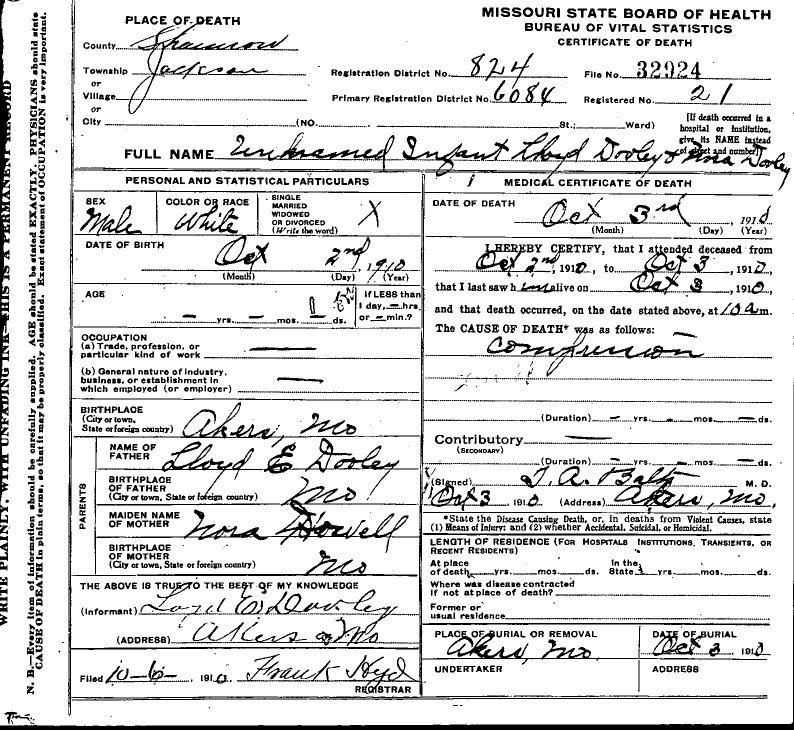 MISSOURI STATE BOARD OF HEALTH
BUREAU OF VITAL STATISTICS
CERTIFICATE OF DEATH
PLACE OF DEATH
County Shannon
Township Jackson
or
Village
or
City (NO. St.; Ward)
Registration District No. 824 File No. 32924
Primary Registration District No. 6084 Registered No. 21
[If death occurred in a
hospital or institution,
give its NAME instead
of street and number]
FULL NAME Unnamed Infant Lloyd Dooley & Nora Dooley
PERSONAL AND STATISTICAL PARTICULARS
SEX
Male
COLOR OR RACE
White
SINGLE
MARRIED
WIDOWED
OR DIVORCED
(Write the word)
X
DATE OF BIRTH
Oct 2nd, 1910
(Month) (Day) (Year)
AGE
— yrs. — mos. 1 ds.
If LESS than
1 day, — hrs.
or — min.?
OCCUPATION
(a) Trade, profession, or
particular kind of work —
(b) General nature of industry,
business, or establishment in
which employed (or employer) —
BIRTHPLACE
(City or town,
State or foreign country) Akers, Mo
PARENTS
NAME OF
FATHER Lloyd E Dooley
BIRTHPLACE
OF FATHER
(City or town, State or foreign country) Mo
MAIDEN NAME
OF MOTHER Nora Howell
BIRTHPLACE
OF MOTHER
(City or town, State or foreign country) Mo
THE ABOVE IS TRUE TO THE BEST OF MY KNOWLEDGE
(Informant) Loyd E Dooley
(ADDRESS) Akers Mo
Filed 10-6- 1910 Frank Hyd
REGISTRAR
MEDICAL CERTIFICATE OF DEATH
DATE OF DEATH
Oct 3rd 1910
(Month) (Day) (Year)
I HEREBY CERTIFY, that I attended deceased from
Oct 2nd, 1910, to Oct 3, 1910,
that I last saw him alive on Oct 3, 1910,
and that death occurred, on the date stated above, at 10 am.
The CAUSE OF DEATH* was as follows:
compression
(Duration) — yrs. — mos. — ds.
Contributory —
(SECONDARY)
(Duration) — yrs. — mos. — ds.
(Signed) T. A. M. D.
Oct 3 1910 (Address) Akers, Mo.
*State the Disease Causing Death, or, in deaths from Violent Causes, state
(1) Means of Injury; and (2) whether Accidental, Suicidal, or Homicidal.
LENGTH OF RESIDENCE (FOR HOSPITALS INSTITUTIONS, TRANSIENTS, OR
RECENT RESIDENTS)
At place
of death yrs. mos. ds.
In the
State yrs. mos. ds.
Where was disease contracted
If not at place of death?
Former or
usual residence
PLACE OF BURIAL OR REMOVAL
Akers, Mo.
DATE OF BURIAL
Oct 3 1910
UNDERTAKER
ADDRESS
WRITE PLAINLY, WITH UNFADING INK—THIS IS A PERMANENT RECORD
N. B.—Every item of information should be carefully supplied. AGE should be stated EXACTLY. PHYSICIANS should state
CAUSE OF DEATH in plain terms, so that it may be properly classified. Exact statement of OCCUPATION is very important.